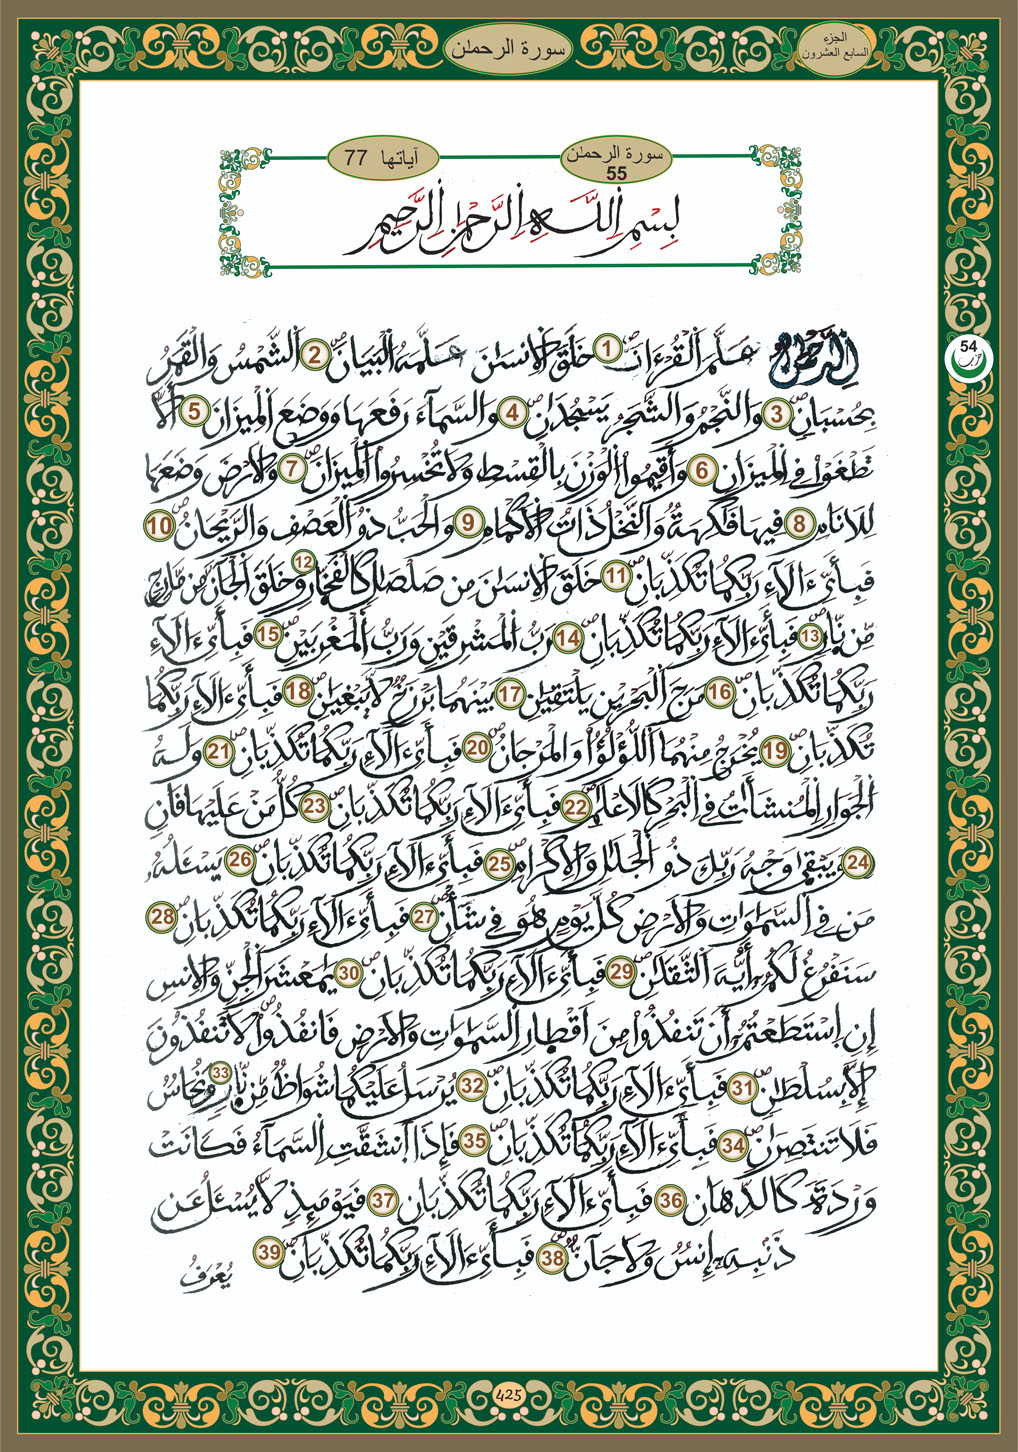 سورة الرحمٰن
الجزء
السابع العشرون
آياتها 77
سورة الرحمٰن
55
بِسْمِ اِ۬للَّهِ اِ۬لرَّحْمَٰنِ اِ۬لرَّحِيمِ
54
حزب
اَ۬لرَّحْمَٰنُ عَلَّمَ اَ۬لْقُرْءَانَ 1 خَلَقَ اَ۬لِانسَٰنَ عَلَّمَهُ اُ۬لْبَيَانَ 2 اَ۬لشَّمْسُ وَالْقَمَرُ
بِحُسْبَانٖ 3 وَالنَّجْمُ وَالشَّجَرُ يَسْجُدَٰنِ 4 وَالسَّمَآءَ رَفَعَهَا وَوَضَعَ اَ۬لْمِيزَانَ 5 أَلَّا
تَطْغَوْاْ فِے اِ۬لْمِيزَانِ 6 وَأَقِيمُواْ اُ۬لْوَزْنَ بِالْقِسْطِ وَلَا تُخْسِرُواْ اُ۬لْمِيزَانَ 7 وَالَارْضَ وَضَعَهَا
لِلَانَامِ 8 فِيهَا فَٰكِهَةٞ وَالنَّخْلُ ذَاتُ اُ۬لَاكْمَامِ 9 وَالْحَبُّ ذُو اُ۬لْعَصْفِ وَالرَّيْحَانُ 10
فَبِأَيِّ ءَالَآءِ رَبِّكُمَا تُكَذِّبَانِ 11 خَلَقَ اَ۬لِانسَٰنَ مِن صَلْصَٰلٖ كَالْفَخّ۪ارِ 12 وَخَلَقَ اَ۬لْجَآنَّ مِن مَّارِجٖ
مِّن نّ۪ارٖ 13 فَبِأَيِّ ءَالَآءِ رَبِّكُمَا تُكَذِّبَانِ 14 رَبُّ اُ۬لْمَشْرِقَيْنِ وَرَبُّ اُ۬لْمَغْرِبَيْنِ 15 فَبِأَيِّ ءَالَآءِ
رَبِّكُمَا تُكَذِّبَانِ 16 مَرَجَ اَ۬لْبَحْرَيْنِ يَلْتَقِيَٰنِ 17 بَيْنَهُمَا بَرْزَخٞ لَّا يَبْغِيَٰنِ 18 فَبِأَيِّ ءَالَآءِ رَبِّكُمَا
تُكَذِّبَانِ 19 يُخْرَجُ مِنْهُمَا اَ۬للُّؤْلُؤُاْ وَالْمَرْجَانُ 20 فَبِأَيِّ ءَالَآءِ رَبِّكُمَا تُكَذِّبَانِ 21 وَلَهُ
اُ۬لْجَوَارِ اِ۬لْمُنشَـَٔاتُ فِے اِ۬لْبَحْرِ كَالَاعْلَٰمِ 22 فَبِأَيِّ ءَالَآءِ رَبِّكُمَا تُكَذِّبَانِ 23 كُلُّ مَنْ عَلَيْهَا فَانٖ
24 وَيَبْقَىٰ وَجْهُ رَبِّكَ ذُو اُ۬لْجَلَٰلِ وَالِاكْرَامِ 25 فَبِأَيِّ ءَالَآءِ رَبِّكُمَا تُكَذِّبَانِ 26 يَسْـَٔلُهُۥ
مَن فِے اِ۬لسَّمَٰوَٰتِ وَالَارْضِ كُلَّ يَوْمٍ هُوَ فِے شَأْنٖ 27 فَبِأَيِّ ءَالَآءِ رَبِّكُمَا تُكَذِّبَانِ 28
سَنَفْرُغُ لَكُمُۥٓ أَيُّهَ اَ۬لثَّقَلَٰنِ 29 فَبِأَيِّ ءَالَآءِ رَبِّكُمَا تُكَذِّبَانِ 30 يَٰمَعْشَرَ اَ۬لْجِنِّ وَالِانسِ
إِنِ اِ۪سْتَطَعْتُمُۥٓ أَن تَنفُذُواْ مِنَ اَقْطِارِ اِ۬لسَّمَٰوَٰتِ وَالَارْضِ فَانفُذُواْ لَا تَنفُذُونَ
إِلَّا بِسُلْطَٰنٖ 31 فَبِأَيِّ ءَالَآءِ رَبِّكُمَا تُكَذِّبَانِ 32 يُرْسَلُ عَلَيْكُمَا شُوَاظٞ مِّن نّ۪ارٖ 33 وَنُحَاسٞ
فَلَا تَنتَصِرَٰنِ 34 فَبِأَيِّ ءَالَآءِ رَبِّكُمَا تُكَذِّبَانِ 35 فَإِذَا اَ۪نشَقَّتِ اِ۬لسَّمَآءُ فَكَانَتْ
وَرْدَةٗ كَالدِّهَانِ 36 فَبِأَيِّ ءَالَآءِ رَبِّكُمَا تُكَذِّبَانِ 37 فَيَوْمَئِذٖ لَّا يُسْـَٔلُ عَن
ذَنۢبِهِۦٓ إِنسٞ وَلَا جَآنّٞ 38 فَبِأَيِّ ءَالَآءِ رَبِّكُمَا تُكَذِّبَانِ 39
يُعْرَفُ
425